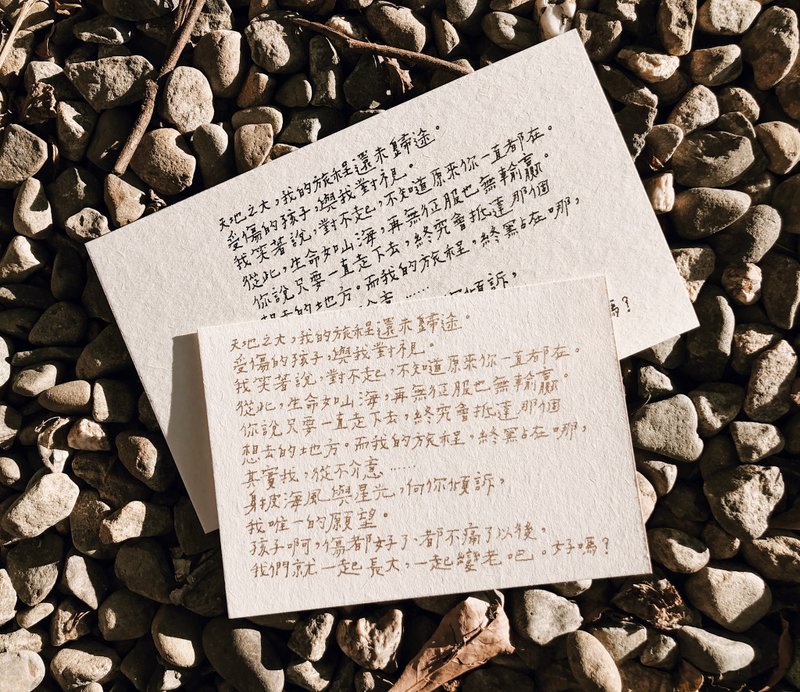 天地之大，我的旅程還未歸途。
受傷的孩子，與我對視。
我笑著說，對不起，不知道原來你一直都在。
從此，生命如山海，再無征服也無輸贏。
你說只要一直走下去，終究會抵達那個
想去的地方。而我的旅程，終點在哪，
天地之大，我的旅程還未歸途。
受傷的孩子，與我對視。
我笑著說，對不起，不知道原來你一直都在。
從此，生命如山海，再無征服也無輸贏。
你說只要一直走下去，終究會抵達那個
想去的地方。而我的旅程，終點在哪，
其實我，從不介意……
身披海風與星光，向你傾訴，
我唯一的願望。
孩子啊，傷都好了、都不痛了以後。
我們就一起長大，一起變老吧。好嗎？